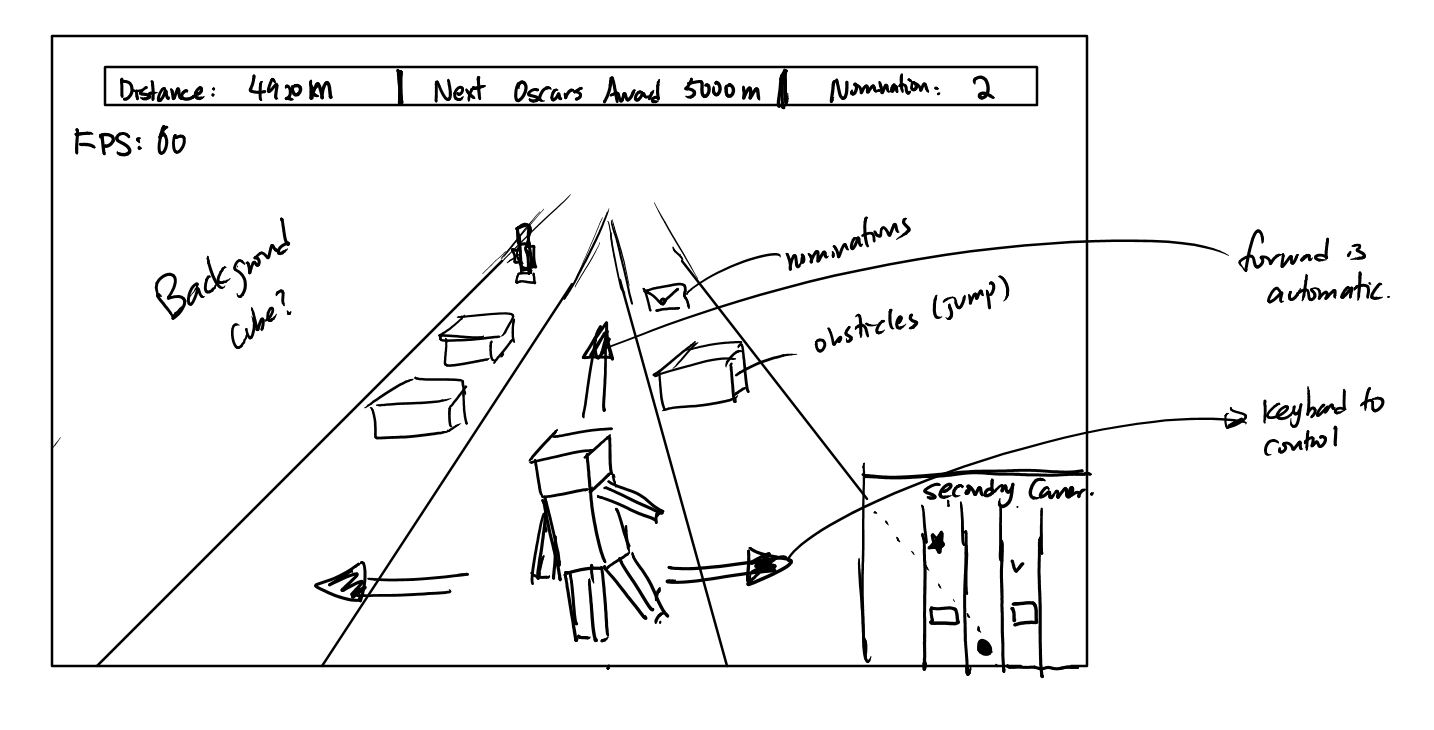 Distance: 4920 km
Next Oscars Award 5000m
Nomination: 2
FPS: 60
Background
cube?
nominations
obsticles (jump)
forward is
automatic.
keyboard to
control
secondry Camer.